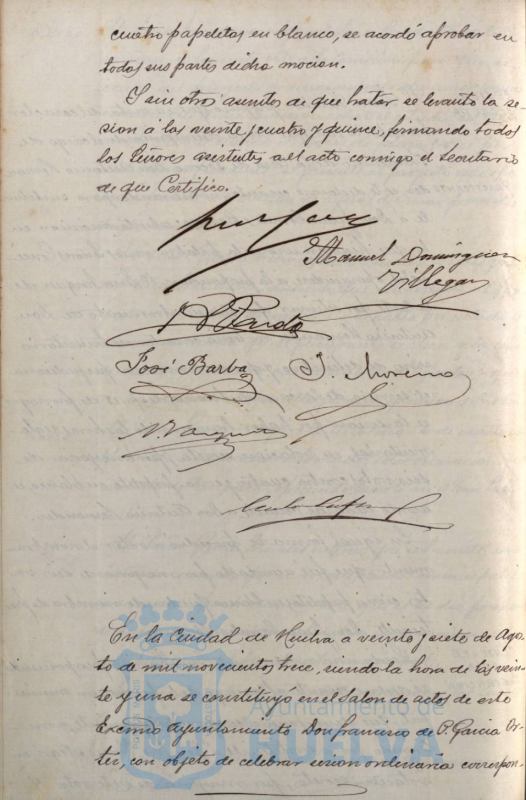 cuatro papeletas en blanco, se acordó aprobar en
todas sus partes dicha mocion.
Y sin otros asuntos de que tratar se levantó la se-
sion á las veinte y cuatro y quince, firmando todos
los Señores asistentes al acto conmigo el Secretario
de que Certifico.
Manuel Dominguez
Villegas
José Barba
J. Moreno
En la Ciudad de Huelva á veinte y siete de Agos-
to de mil novecientos trece, siendo la hora de las vein-
te y una se constituyó en el Salon de actos de este
Excmo Ayuntamiento Don Francisco de P. Garcia Or-
tiz, con objeto de celebrar sesion ordinaria correspon-
Ayuntamiento de
HUELVA